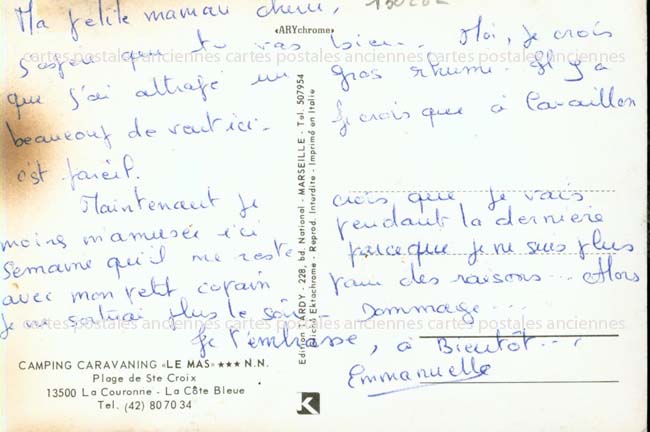 Ma petite maman chérie,
J'espère que tu vas bien. Moi, je crois
que j'ai attrapé un gros rhume. Il y a
beaucoup de vent ici. Je crois que à Cavaillon
c'est pareil.
Maintenant je crois que je vais
moins m'amusée ici pendant la dernière
semaine qu'il me reste parceque je ne suis plus
avec mon petit copain pour des raisons... Alors
je ne sortirai plus le soir. Dommage...
Je t'embrasse, à Bientôt...
Emmanuelle
«ARYchrome»
Edition ARDY - 228, bd. National - MARSEILLE - Tel. 507954
Cliché Ektachrome - Reprod. Interdite - Imprimé en Italie
CAMPING CARAVANING «LE MAS» *** N.N.
Plage de Ste Croix
13500 La Couronne - La Côte Bleue
Tel. (42) 80 70 34
K
cartes postales anciennes cartes postales anciennes cartes postales anciennes
cartes postales anciennes cartes postales anciennes cartes postales anciennes